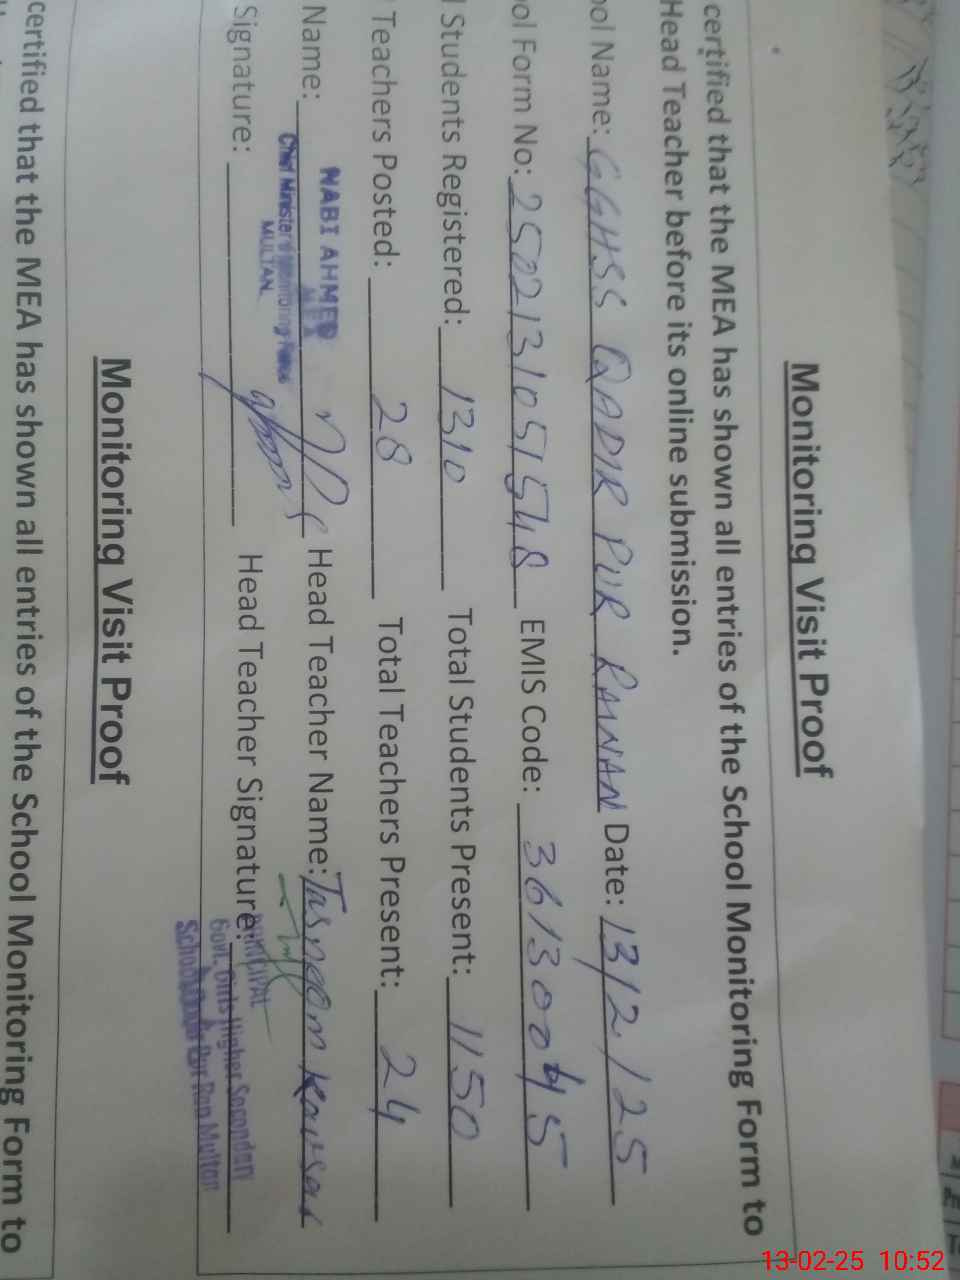 Monitoring Visit Proof
certified that the MEA has shown all entries of the School Monitoring Form to
Head Teacher before its online submission.
ool Name: GGHSS QADIR PUR RAWAN Date: 13/2/25
ool Form No: 2502131051548 EMIS Code: 36130045
l Students Registered: 1310 Total Students Present: 1150
Teachers Posted: 28 Total Teachers Present: 24
Name: NABI AHMED Head Teacher Name: Tasneem Kousar
MEA
Chief Minister's Monitoring Force
MULTAN.
Signature: Head Teacher Signature:
PRINCIPAL
Govt. Girls Higher Secondary
School Qadir Pur Ran Multan
Monitoring Visit Proof
certified that the MEA has shown all entries of the School Monitoring Form to
13-02-25 10:52